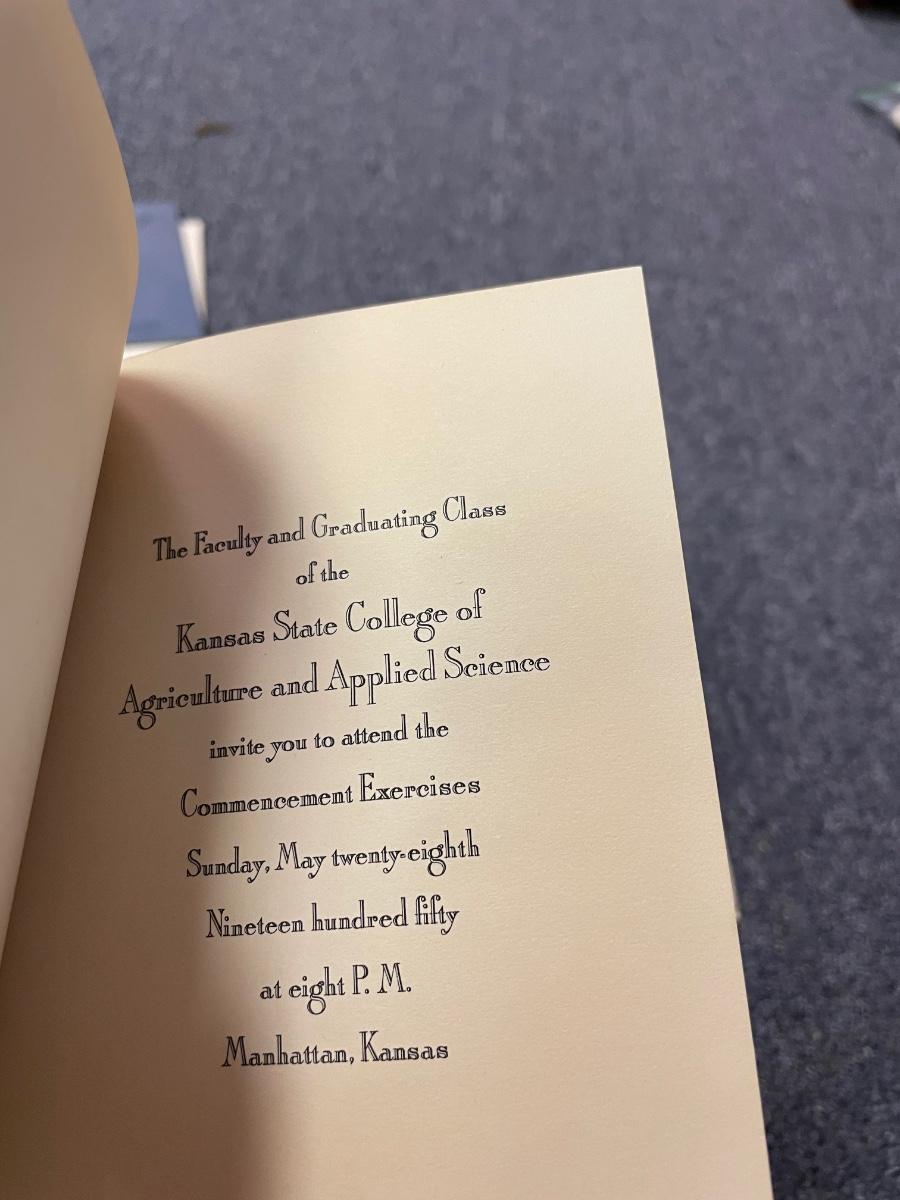 The Faculty and Graduating Class
of the
Kansas State College of
Agriculture and Applied Science
invite you to attend the
Commencement Exercises
Sunday, May twenty-eighth
Nineteen hundred fifty
at eight P. M.
Manhattan, Kansas